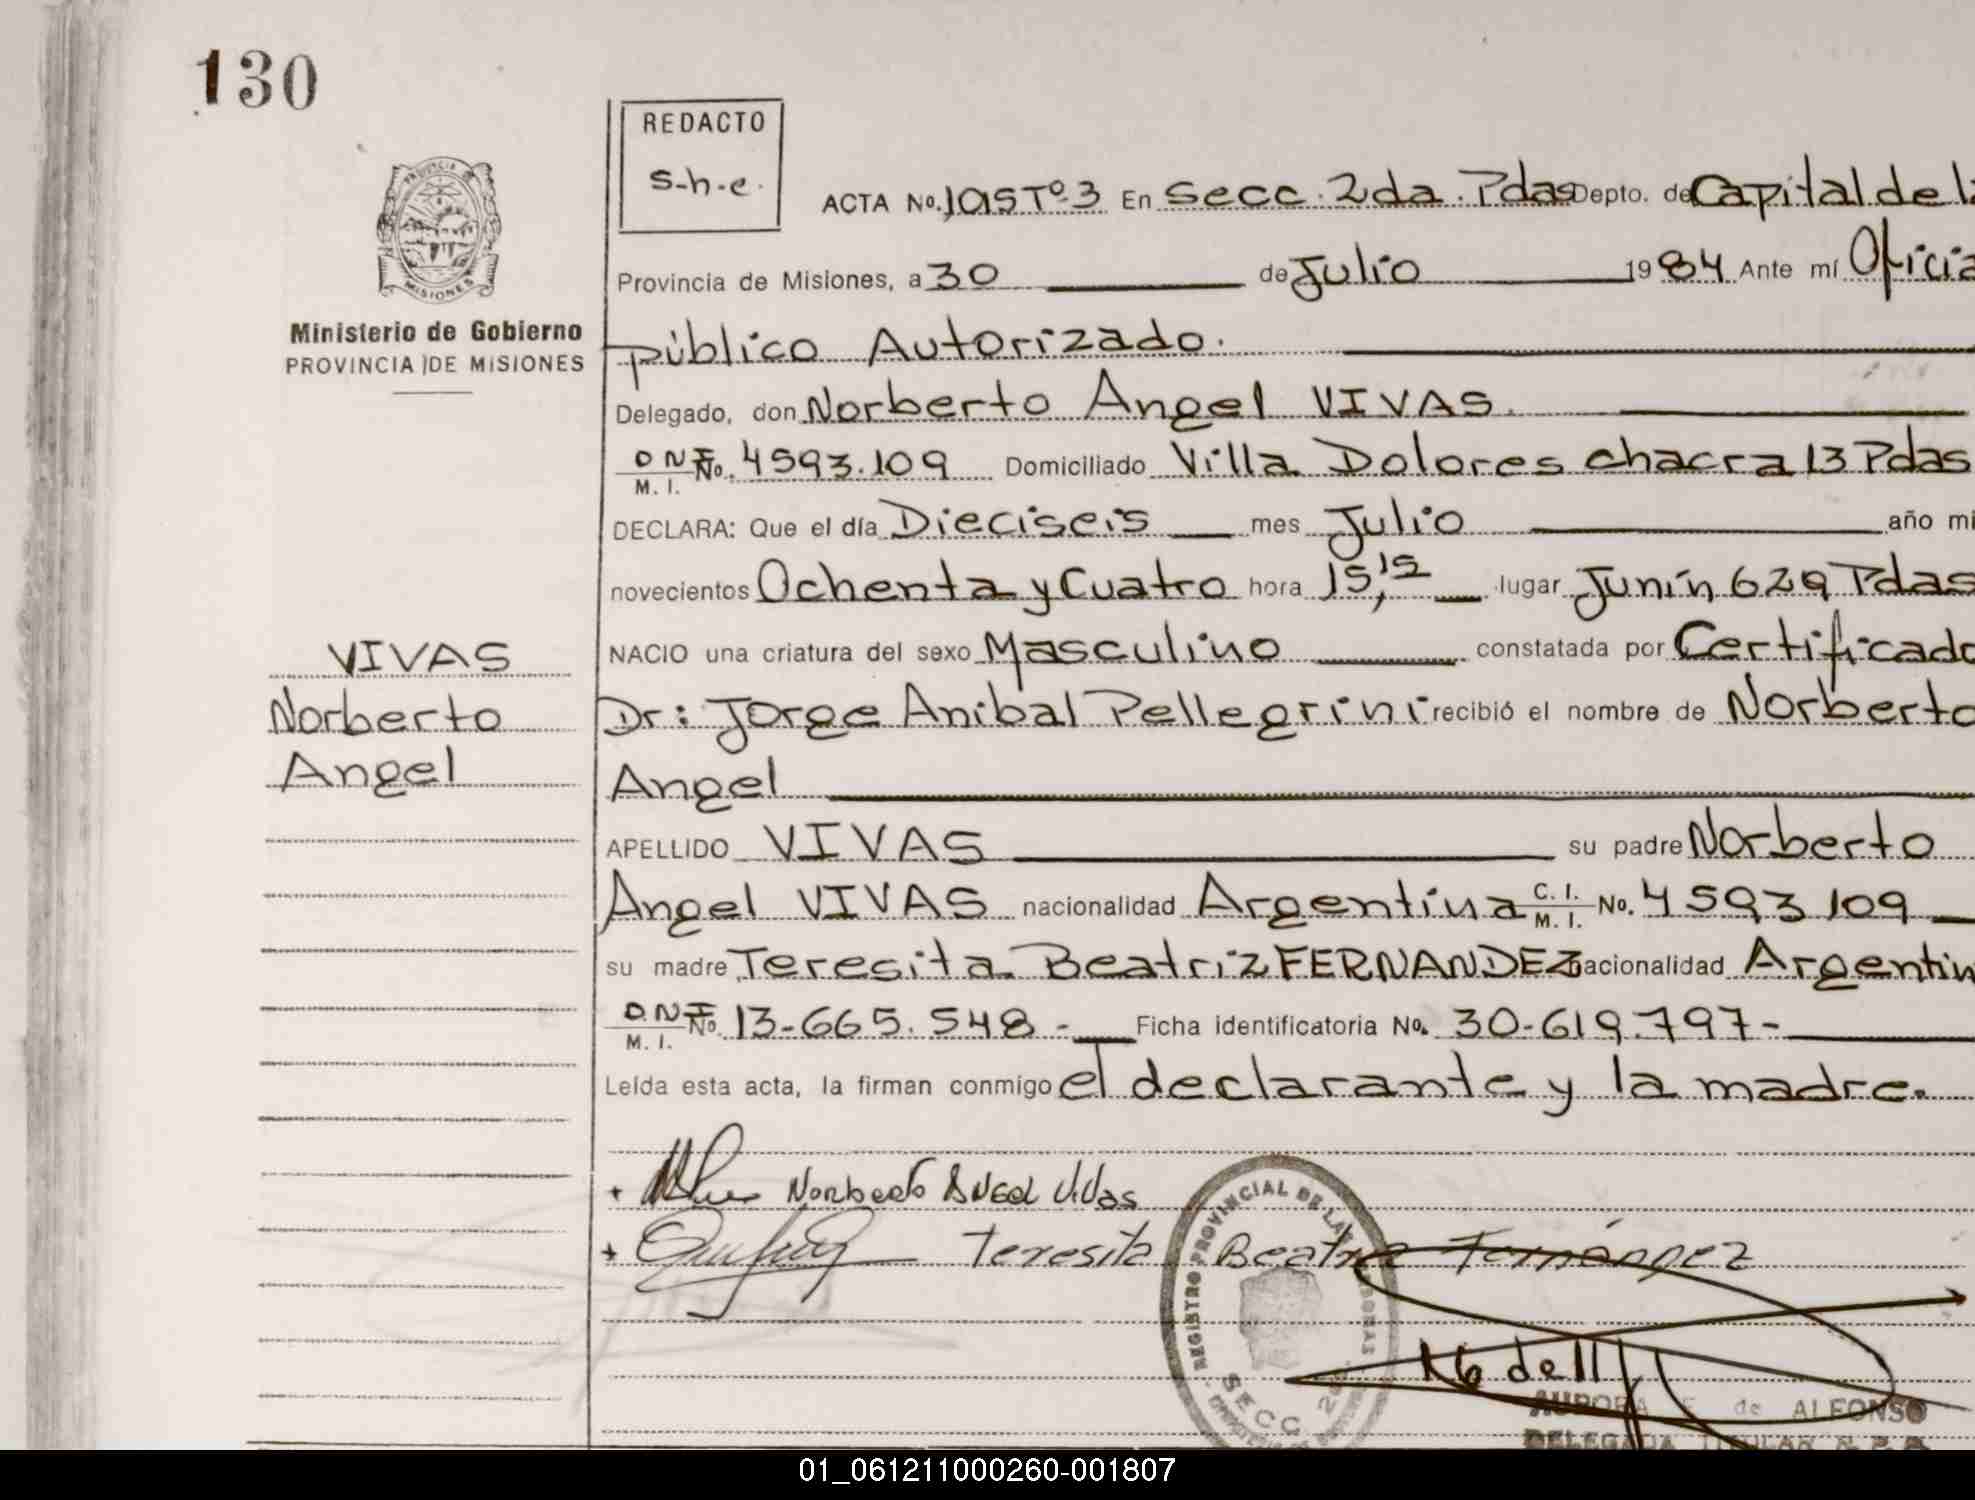 130
REDACTO
s-h-e.
PROVINCIA DE
MISIONES
Ministerio de Gobierno
PROVINCIA DE MISIONES
ACTA No. 1015 Tº 3 En Secc. 2da. Pdas Depto. de Capital de la
Provincia de Misiones, a 30 de Julio 1984 Ante mí Oficia
público Autorizado.
Delegado, don Norberto Angel VIVAS.
DNI No. 4593.109 Domiciliado Villa Dolores chacra 13 Pdas
M. I.
DECLARA: Que el día Dieciseis mes Julio año mi
novecientos Ochenta y Cuatro hora 15,15 lugar Junín 629 Pdas
NACIO una criatura del sexo Masculino constatada por Certificado
Dr: Jorge Anibal Pellegrini recibió el nombre de Norberto
Angel
VIVAS
Norberto
Angel
APELLIDO VIVAS su padre Norberto
Angel VIVAS nacionalidad Argentina C. I. M. I. No. 4593109
su madre Teresita Beatriz FERNANDEZ nacionalidad Argentin
D.N.I No. 13-665.548.- Ficha identificatoria No. 30-619.797-
M. I.
Leída esta acta, la firman conmigo el declarante y la madre.
+ Norberto Angel Vivas
+ Teresita Beatriz Fernández
REGISTRO PROVINCIAL DE LAS PERSONAS
SECC. 2da.
AURORA E. de ALFONSO
DELEGADA TITULAR R. P. P.
01_061211000260-001807